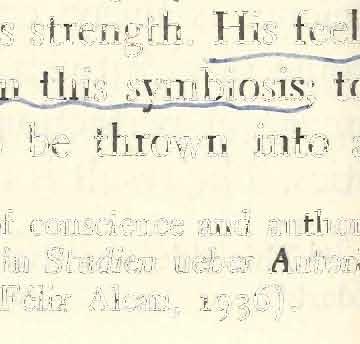 s strength. His feel
n this symbiosis; to
be thrown into a
of conscience and author
in Studien ueber Autor
Félix Alcan, 1936).